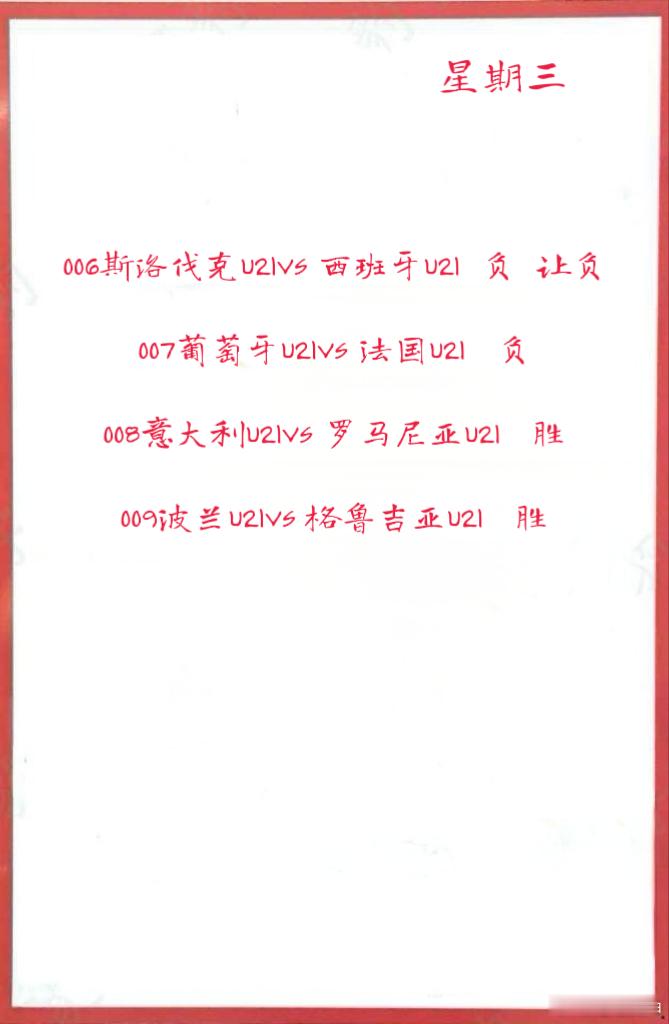 星期三
006斯洛伐克U21VS 西班牙U21 负 让负
007葡萄牙U21VS 法国U21 负
008意大利U21VS 罗马尼亚U21 胜
009波兰U21VS 格鲁吉亚U21 胜